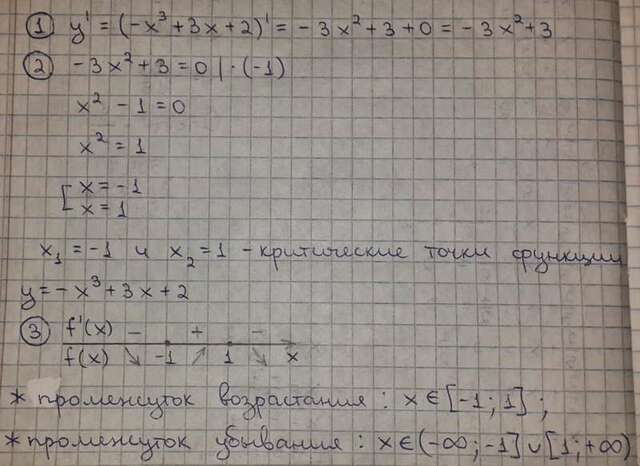 ① y' = (-x³+3x+2)' = -3x²+3+0 = -3x²+3
② -3x²+3=0 |·(-1)
x² - 1 = 0
x² = 1
[ x = -1
x = 1
x₁ = -1 и x₂ = 1 - критические точки функции
y = -x³+3x+2
③ f'(x) - + -
f(x) ↘ -1 ↗ 1 ↘ x
* промежуток возрастания: x ∈ [-1; 1];
* промежуток убывания: x ∈ (-∞; -1] ∪ [1; +∞)